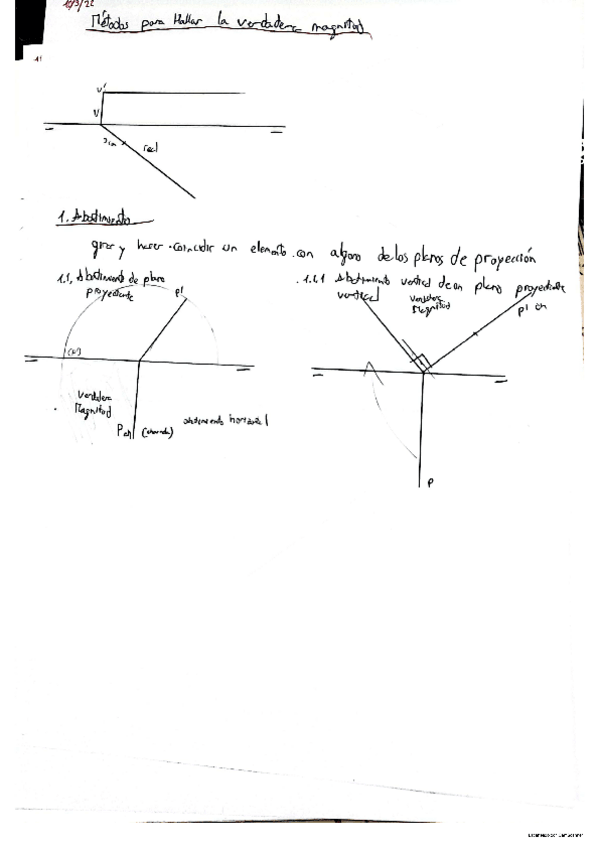 Métodos para Hallar la verdadera magnitud
V'
V
3cm
real
1. Abatimiento
girar y hacer coincidir un elemento con alguno de los planos de proyección
1.1. Abatimiento de plano
proyectante
P'
1.1.1 Abatimiento vertical de un plano proyectante
vertical
Verdadera
Magnitud
P'
Verdadera
Magnitud
abatimiento horizontal
P